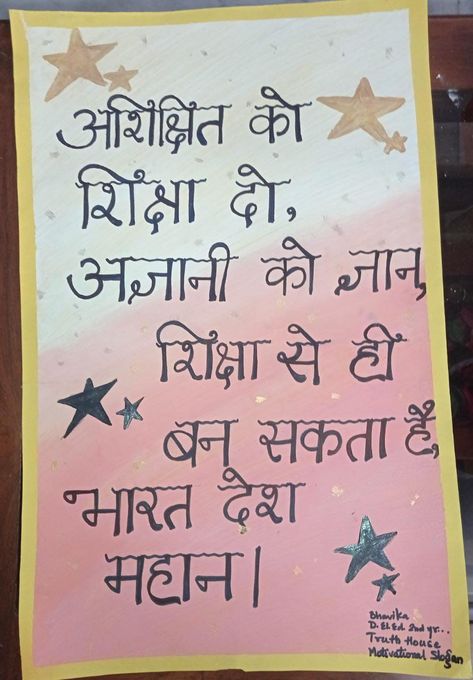 अशिक्षित को
शिक्षा दो,
अज्ञानी को ज्ञान,
शिक्षा से ही
बन सकता है,
भारत देश
महान।
Bhavika
D.El.Ed 2nd yr...
Truth House
Motivational Slogan